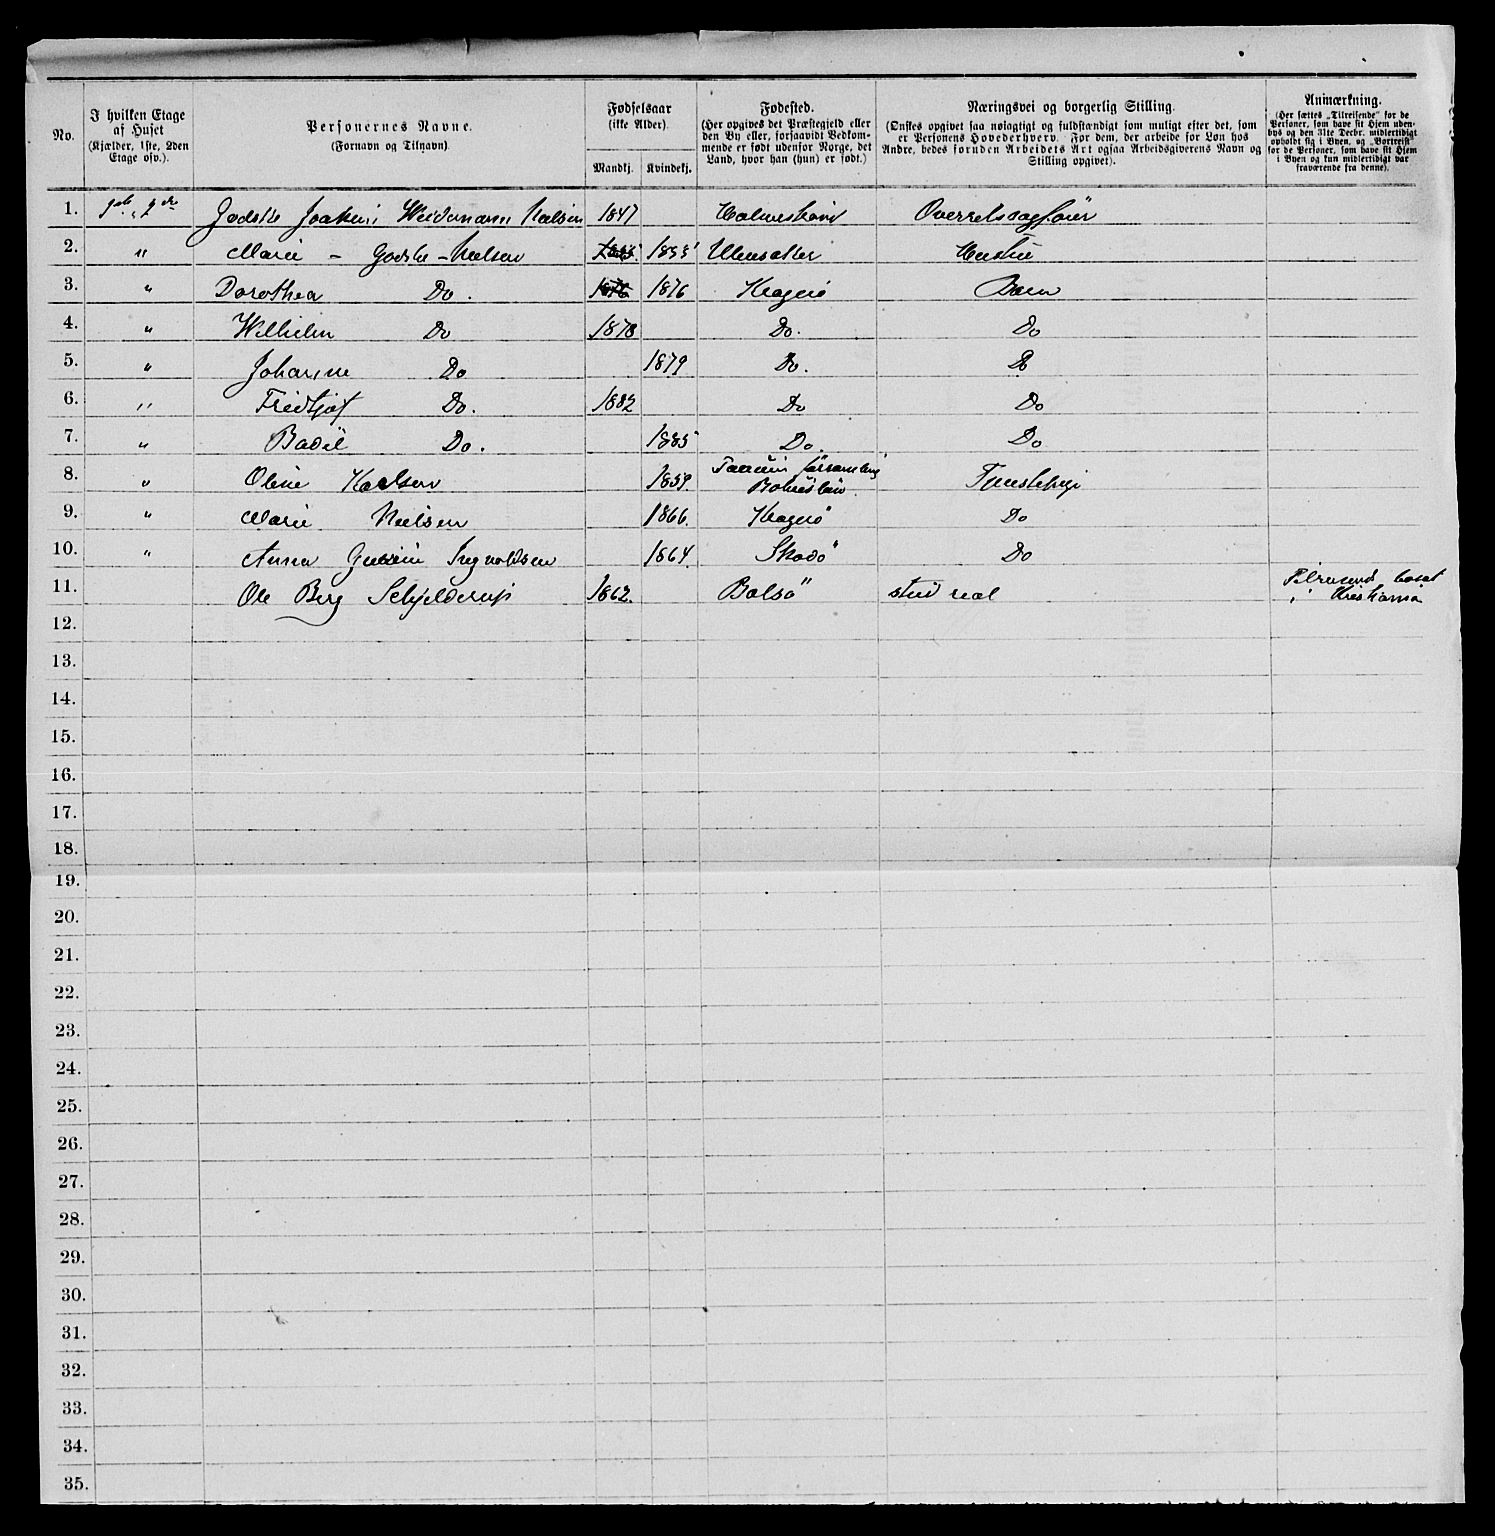 No.
I hvilken Etage
af Huset
(Kjælder, 1ste, 2den
Etage osv.).
Personernes Navne.
(Fornavn og Tilnavn).
Fødselsaar
(ikke Alder).
Mandkj. Kvindekj.
Fødested.
(Her opgives det Præstegjeld eller
den By eller, forsaavidt Vedkom-
mende er født udenfor Norge, det
Land, hvor han (hun) er født.)
Næringsvei og borgerlig Stilling.
(Ønskes opgivet saa nøiagtigt og fuldstændigt som muligt efter det, som
er Personens Hovederhverv. For dem, der arbeide for Løn hos
Andre, bedes foruden Arbeidets Art ogsaa Arbeidsgiverens Navn og
Stilling opgivet).
Anmærkning.
(Her sættes „Tilreisende" for de
Personer, som have sit Hjem uden-
bys og den 31te Decbr. midlertidigt
opholdt sig i Byen, og „Bortreist"
for de Personer, som have sit Hjem
i Byen og kun midlertidigt var
fraværende fra denne).
1. 1ste „ 2den Godske Joakim Weidemann Nielsen 1847 Holmestrand Overretssagfører
2. " Marie - Godske-Nielsen 1855 1855 Ullensaker Hustru
3. " Dorothea Do. 1876 1876 Kragerø Barn
4. " Wilhelm Do 1878 Do. Do
5. " Johanne Do 1879 Do. Do
6. " Fridtjof Do. 1882 Do Do
7. " Bodil Do. 1885 Do. Do
8. " Oline Karlsen 1859. Bohuslän. Tjenestepige
9. " Marie Nielsen 1866. Kragerø Do
10. " Anna Ingvoldsen 1864. Skaadø Do
11. Ole Berg Schjelderup 1862. Bolsø stud real Tilreisende bosat
i Kristiania
12.
13.
14.
15.
16.
17.
18.
19.
20.
21.
22.
23.
24.
25.
26.
27.
28.
29.
30.
31.
32.
33.
34.
35.